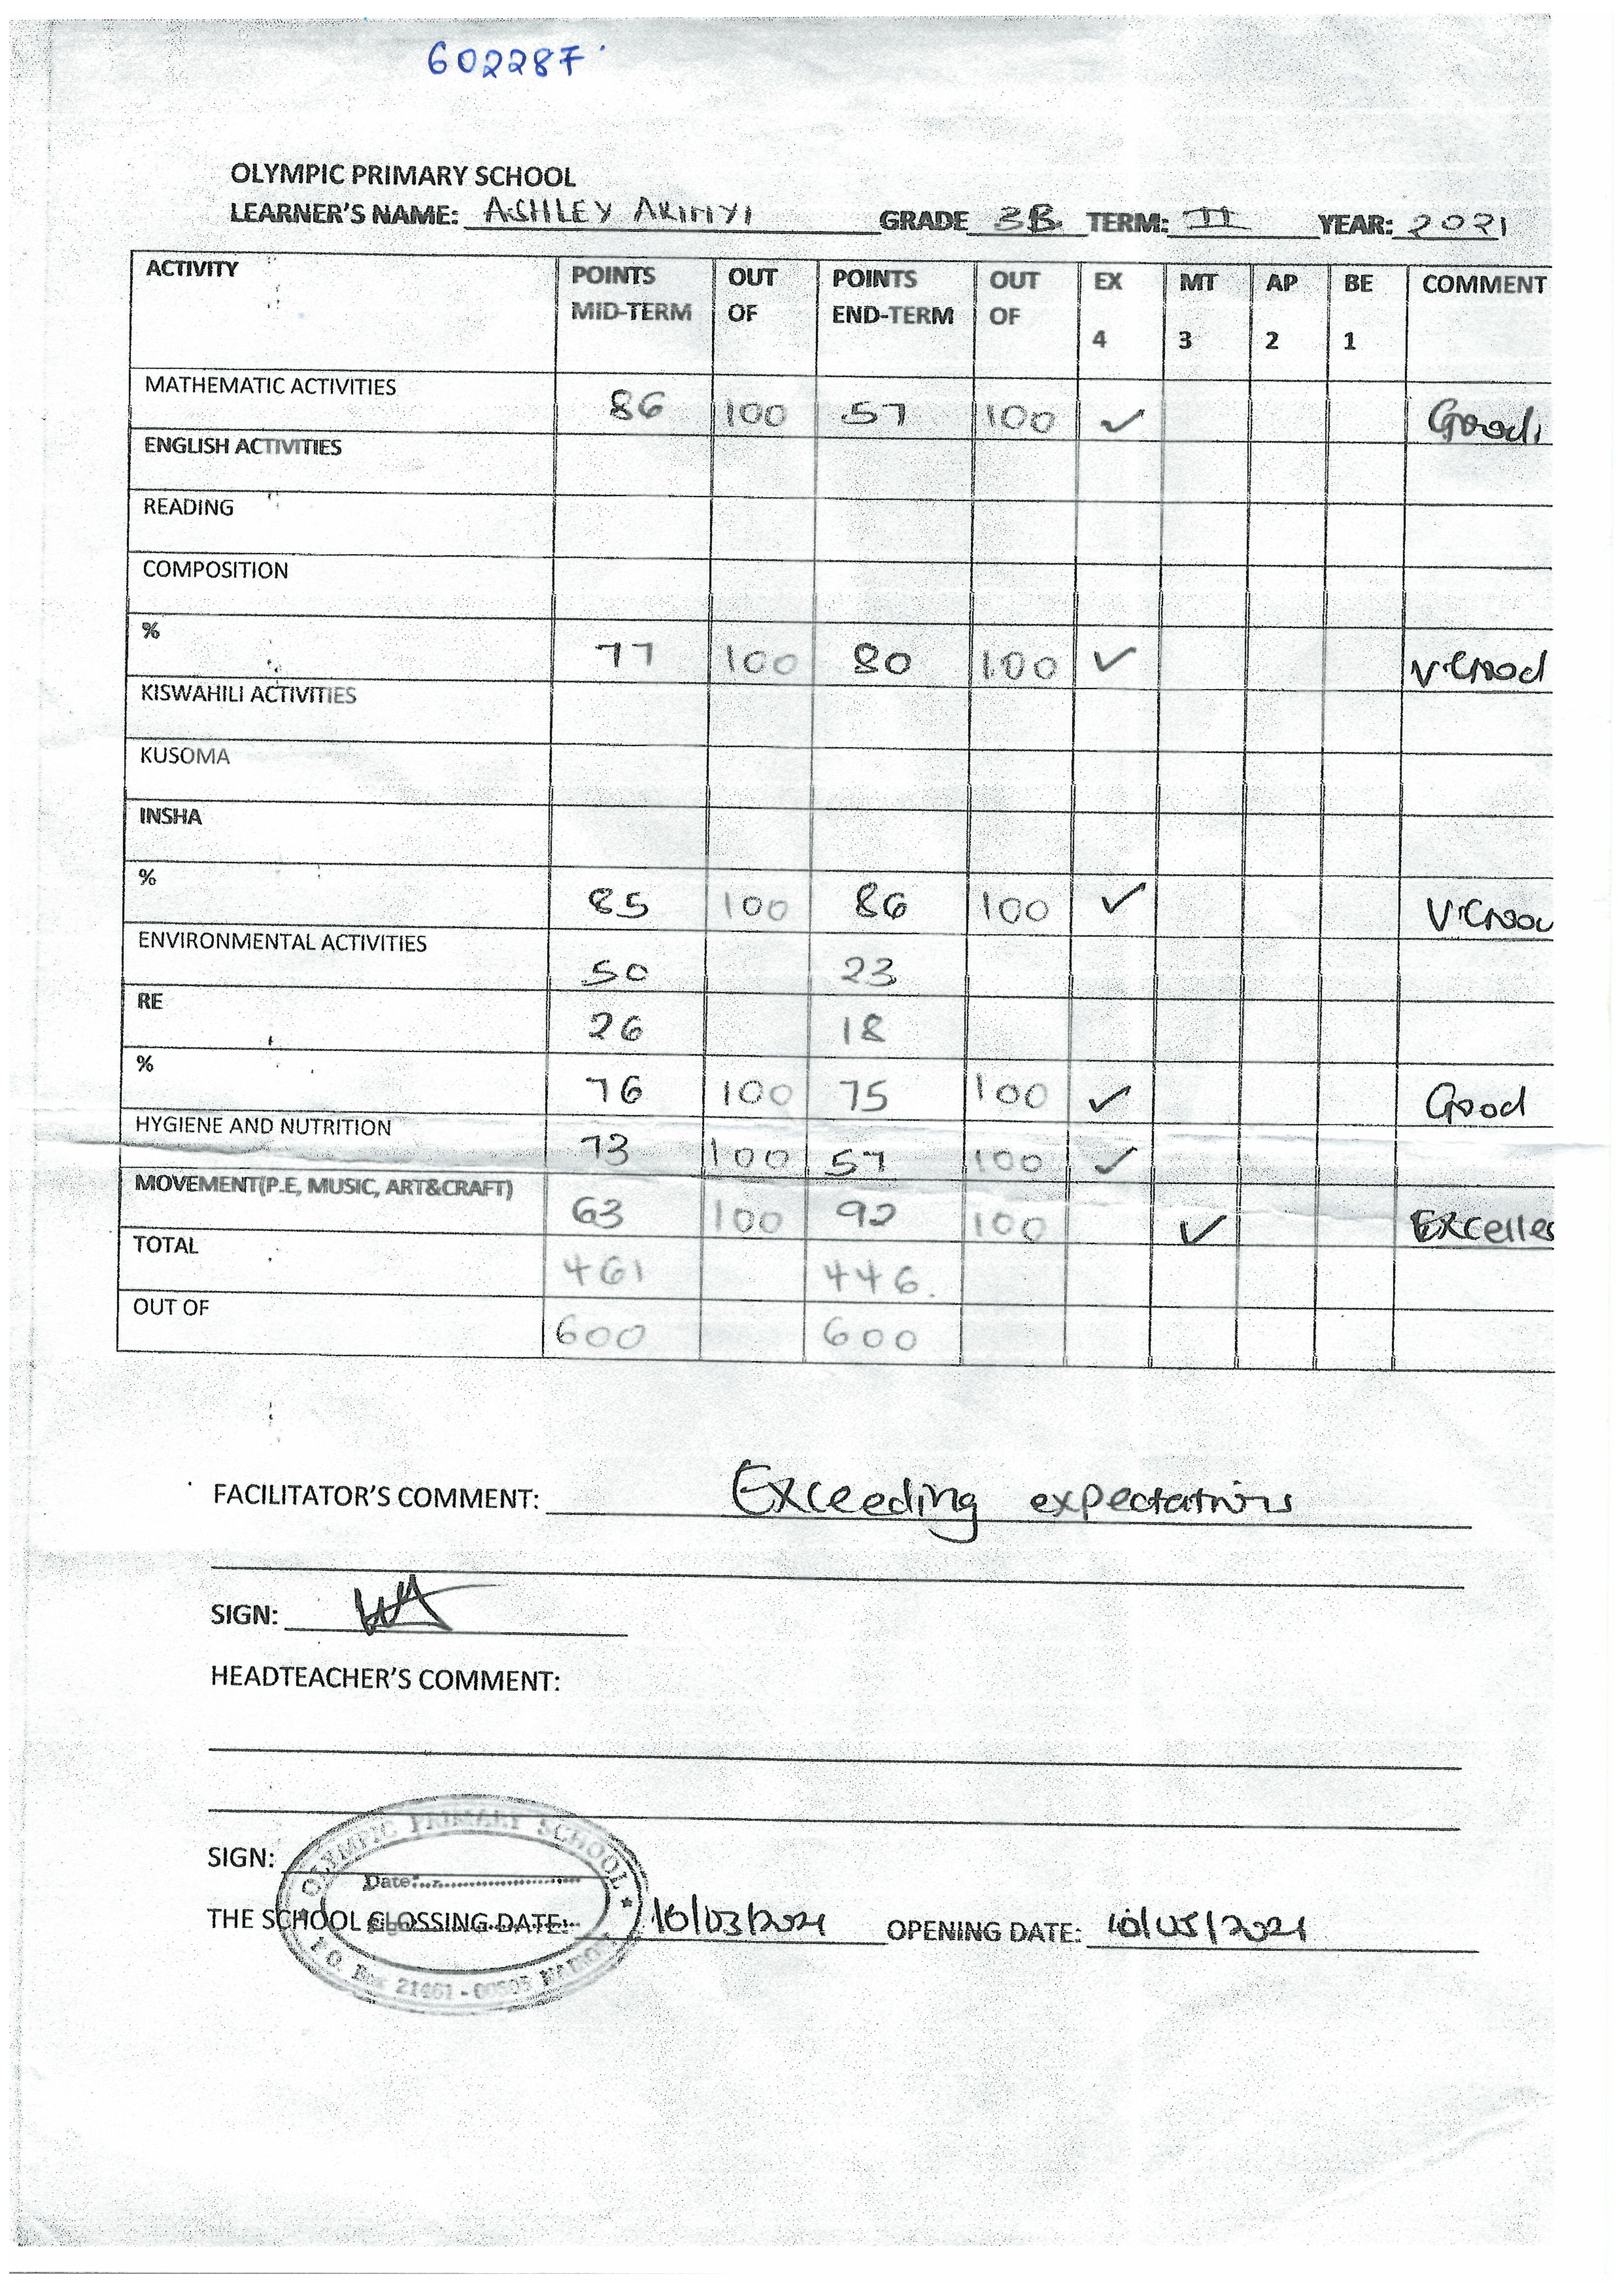 602287
OLYMPIC PRIMARY SCHOOL
LEARNER'S NAME: ASHLEY AKINYI GRADE 3B TERM: II YEAR: 2021
ACTIVITY POINTS MID-TERM OUT OF POINTS END-TERM OUT OF EX 4 MT 3 AP 2 BE 1 COMMENT
MATHEMATIC ACTIVITIES 86 100 57 100 ✓ Good
ENGLISH ACTIVITIES
READING
COMPOSITION
% 77 100 80 100 ✓ V.Good
KISWAHILI ACTIVITIES
KUSOMA
INSHA
% 85 100 86 100 ✓ V.Goo
ENVIRONMENTAL ACTIVITIES 50 23
RE 26 18
% 76 100 75 100 ✓ Good
HYGIENE AND NUTRITION 73 100 57 100 ✓
MOVEMENT(P.E, MUSIC, ART&CRAFT) 63 100 92 100 ✓ Excelle
TOTAL 461 446.
OUT OF 600 600
FACILITATOR'S COMMENT: Exceeding expectations
SIGN:
HEADTEACHER'S COMMENT:
SIGN:
OLYMPIC PRIMARY SCHOOL
Date:
THE SCHOOL CLOSSING DATE: 16/03/2021 OPENING DATE: 10/05/2021
P.O. Box 21461 - 00505 NAIROBI